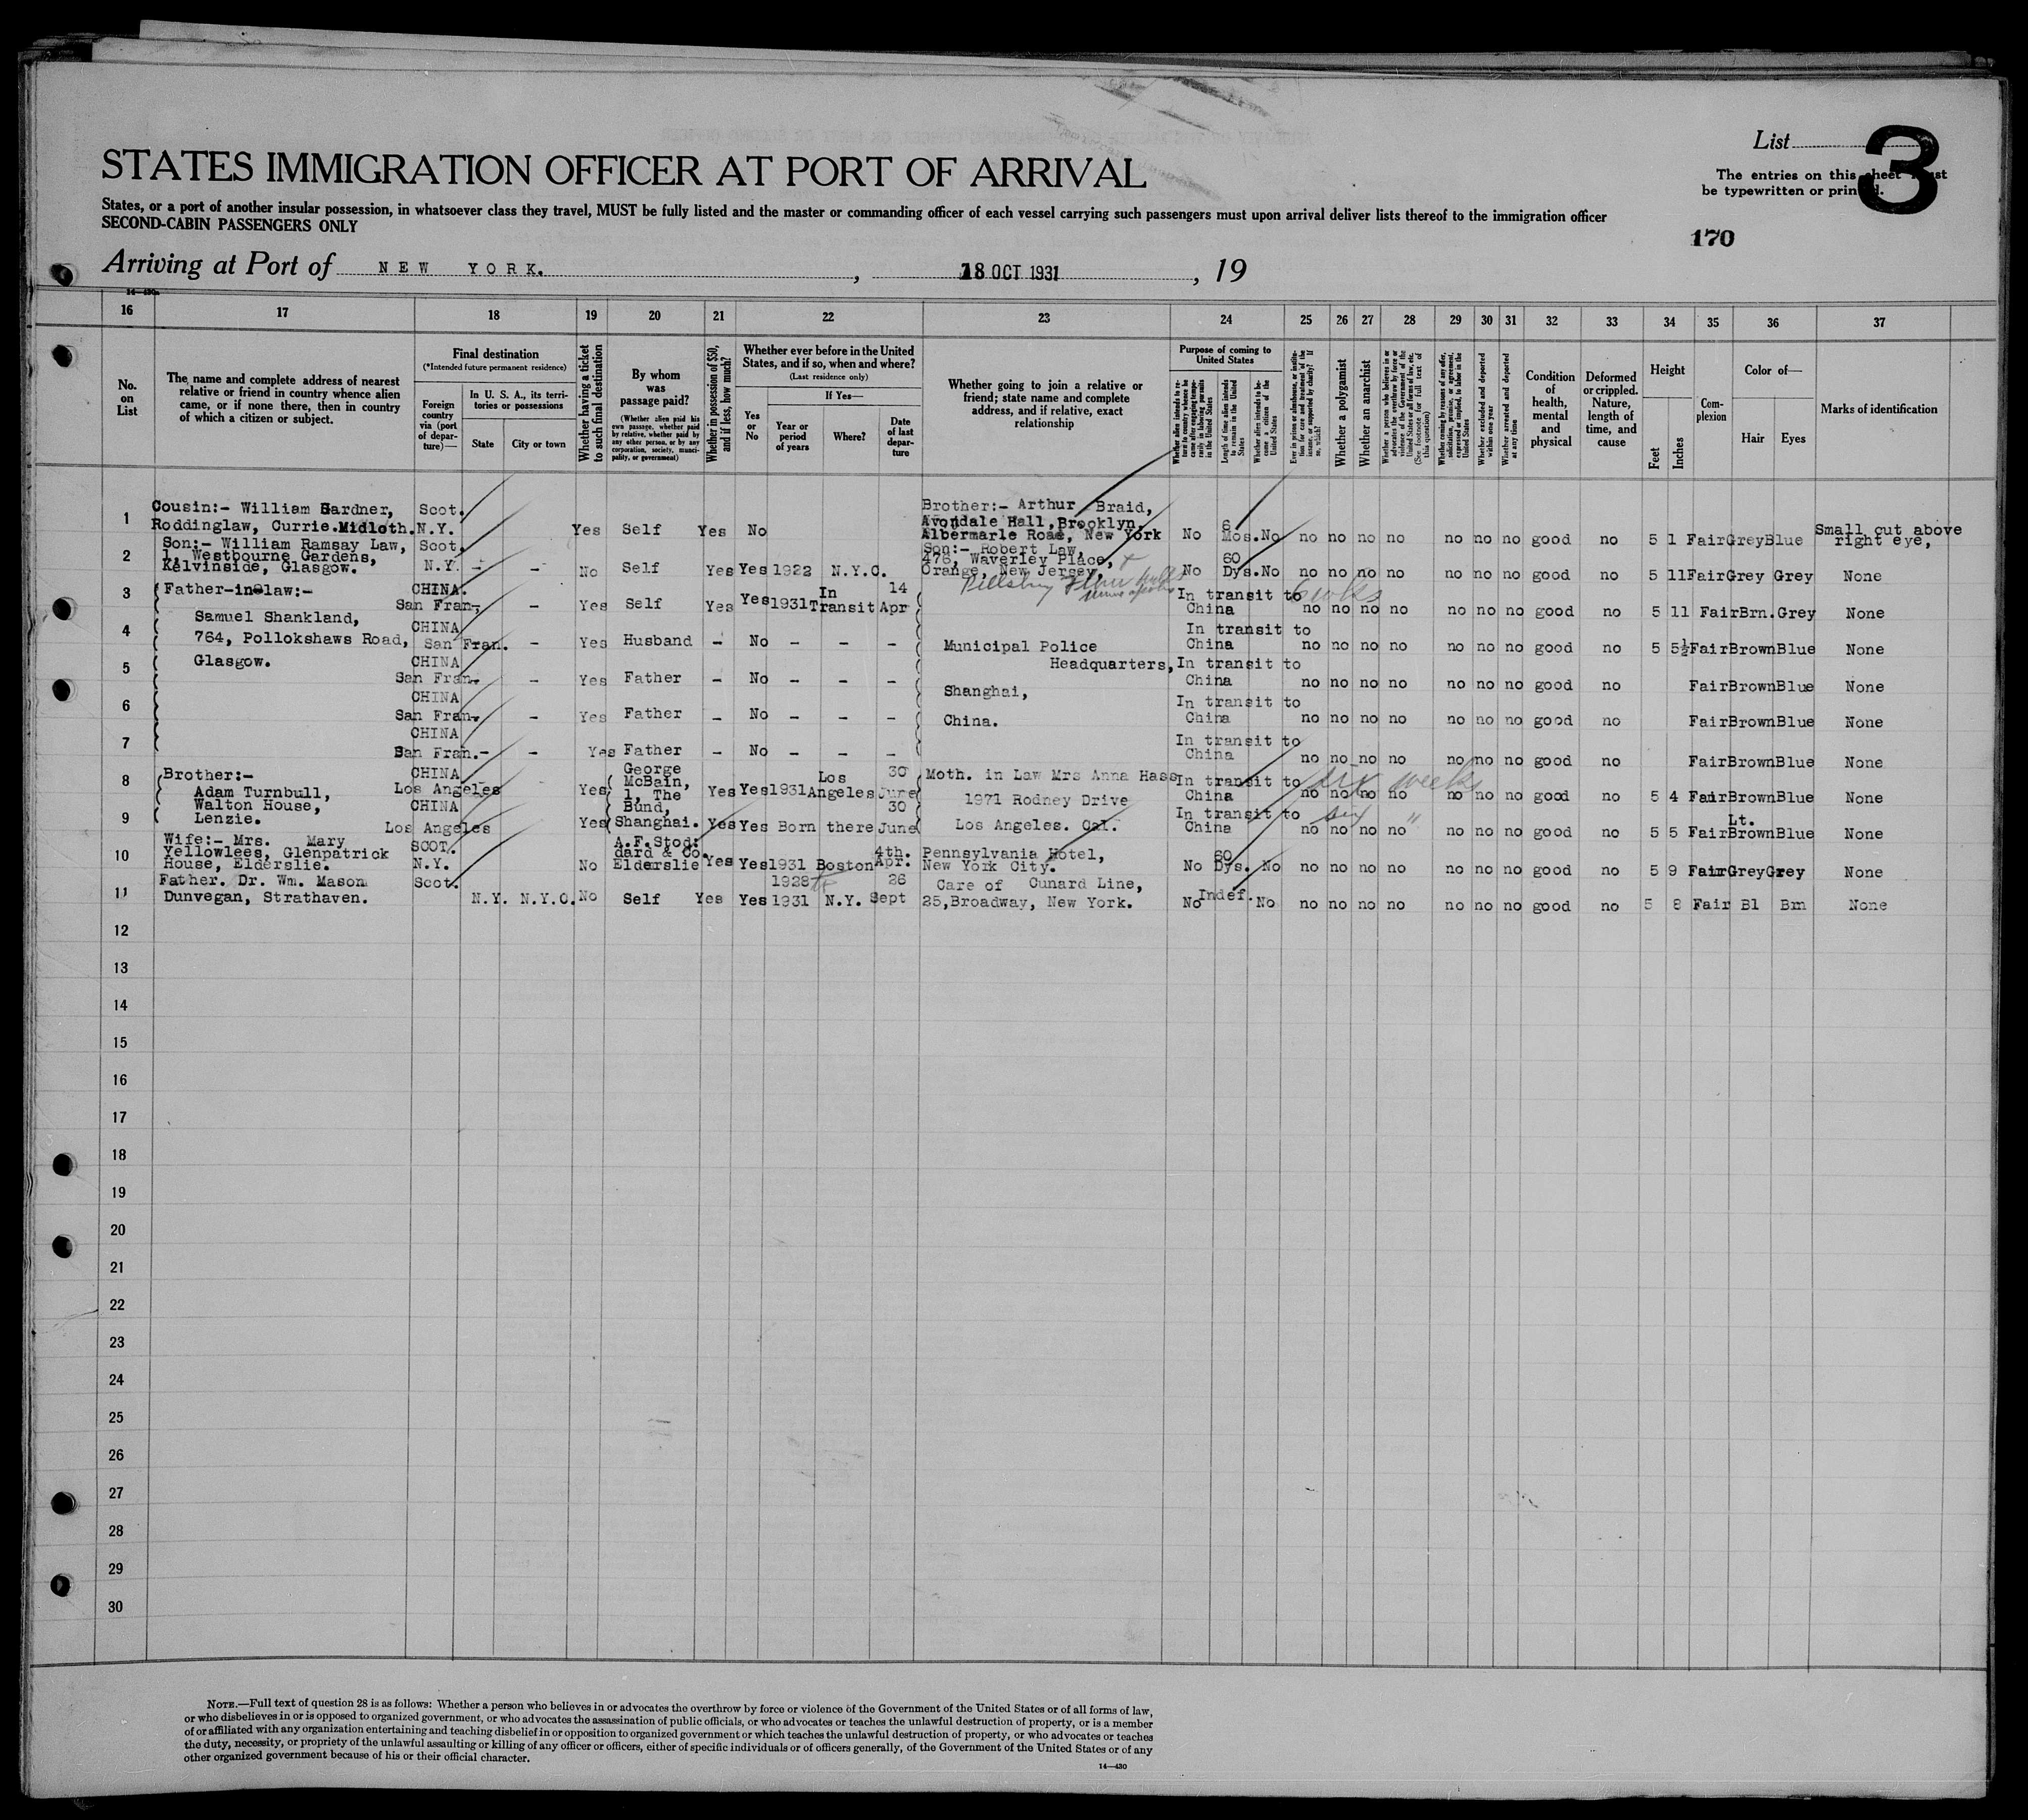 List 3
STATES IMMIGRATION OFFICER AT PORT OF ARRIVAL
The entries on this sheet must
be typewritten or printed.
States, or a port of another insular possession, in whatsoever class they travel, MUST be fully listed and the master or commanding officer of each vessel carrying such passengers must upon arrival deliver lists thereof to the immigration officer
SECOND-CABIN PASSENGERS ONLY
170
Arriving at Port of NEW YORK. , 18 OCT 1931 , 19
16 17 18 19 20 21 22 23 24 25 26 27 28 29 30 31 32 33 34 35 36 37
No. on List
The name and complete address of nearest
relative or friend in country whence alien
came, or if none there, then in country
of which a citizen or subject.
Final destination
(*Intended future permanent residence)
Foreign country via (port of departure)—
In U. S. A., its territories or possessions
State City or town
Whether having a ticket to such final destination
By whom was passage paid?
(Whether alien paid his own passage, whether paid by relative, whether paid by any other person, or by any corporation, society, municipality, or government)
Whether in possession of $50, and if less, how much?
Whether ever before in the United States, and if so, when and where?
(Last residence only)
Yes or No
If Yes—
Year or period of years Where? Date of last departure
Whether going to join a relative or
friend; state name and complete
address, and if relative, exact
relationship
Purpose of coming to United States
Length of time alien intends to remain in the United States
Whether alien intends to become a citizen of the United States
Whether a polygamist
Whether an anarchist
Whether excluded and deported within one year
Whether arrested and deported at any time
Condition of health, mental and physical
Deformed or crippled. Nature, length of time, and cause
Height
Feet Inches
Complexion
Color of—
Hair Eyes
Marks of identification
1 Cousin:- William Gardner, Roddinglaw, Currie. Midloth. Scot. N.Y. Yes Self Yes No Brother:- Arthur Braid, Avondale Hall, Brooklyn, Albermarle Road, New York No 6 Mos. No no no no no no no no good no 5 1 Fair Grey Blue Small cut above right eye,
2 Son:- William Ramsay Law, 1, Westbourne Gardens, Kelvinside, Glasgow. Scot. N.Y. - - No Self Yes Yes 1922 N.Y.C. Son:- Robert Law, 476, Waverley Place, Orange, New Jersey, No 60 Dys. No no no no no no no no good no 5 11 Fair Grey Grey None
Pillsbury Flour Mills
3 Father-in-law:- CHINA. San Fran. - Yes Self Yes Yes 1931 In Transit 14 Apr In transit to China 6 wks no no no no no no no good no 5 11 Fair Brn. Grey None
Samuel Shankland,
4 764, Pollokshaws Road, CHINA San Fran. - Yes Husband - No - - - Municipal Police In transit to China no no no no no no no good no 5 5½ Fair Brown Blue None
Headquarters,
5 Glasgow. CHINA San Fran. - Yes Father - No - - - Shanghai, In transit to China no no no no no no no good no Fair Brown Blue None
6 CHINA San Fran. - Yes Father - No - - - China. In transit to China no no no no no no no good no Fair Brown Blue None
7 CHINA San Fran. - - Yes Father - No - - - In transit to China no no no no no no no good no Fair Brown Blue None
8 Brother:- Adam Turnbull, CHINA Los Angeles Yes George McBain, 1, The Bund, Shanghai. Yes Yes 1931 Los Angeles 30 June Moth. in Law Mrs Anna Hass 1971 Rodney Drive In transit to China six weeks no no no no no no no good no 5 4 Fair Brown Blue None
9 Walton House, Lenzie. CHINA Los Angeles Yes Yes Yes Born there 30 June Los Angeles. Cal. In transit to China six " no no no no no no no good no 5 5 Fair Lt. Brown Blue None
10 Wife:- Mrs. Mary Yellowlees, Glenpatrick House, Elderslie. SCOT. N.Y. No A.F.Stoddard & Co. Elderslie Yes Yes 1931 Boston 4th. Apr. Pennsylvania Hotel, New York City. No 60 Dys. No no no no no no no no good no 5 9 Fair Grey Grey None
11 Father. Dr. Wm. Mason Dunvegan, Strathaven. Scot. N.Y. N.Y.C. No Self Yes Yes 1928 1931 N.Y. 26 Sept Care of Cunard Line, 25, Broadway, New York. No Indef. No no no no no no no no good no 5 8 Fair Bl Brn None
12
13
14
15
16
17
18
19
20
21
22
23
24
25
26
27
28
29
30
NOTE.—Full text of question 28 is as follows: Whether a person who believes in or advocates the overthrow by force or violence of the Government of the United States or of all forms of law,
or who disbelieves in or is opposed to organized government, or who advocates the assassination of public officials, or who advocates or teaches the unlawful destruction of property, or is a member
of or affiliated with any organization entertaining and teaching disbelief in or opposition to organized government or which teaches the unlawful destruction of property, or who advocates or teaches
the duty, necessity, or propriety of the unlawful assaulting or killing of any officer or officers, either of specific individuals or of officers generally, of the Government of the United States or of any
other organized government because of his or their official character.
14—430